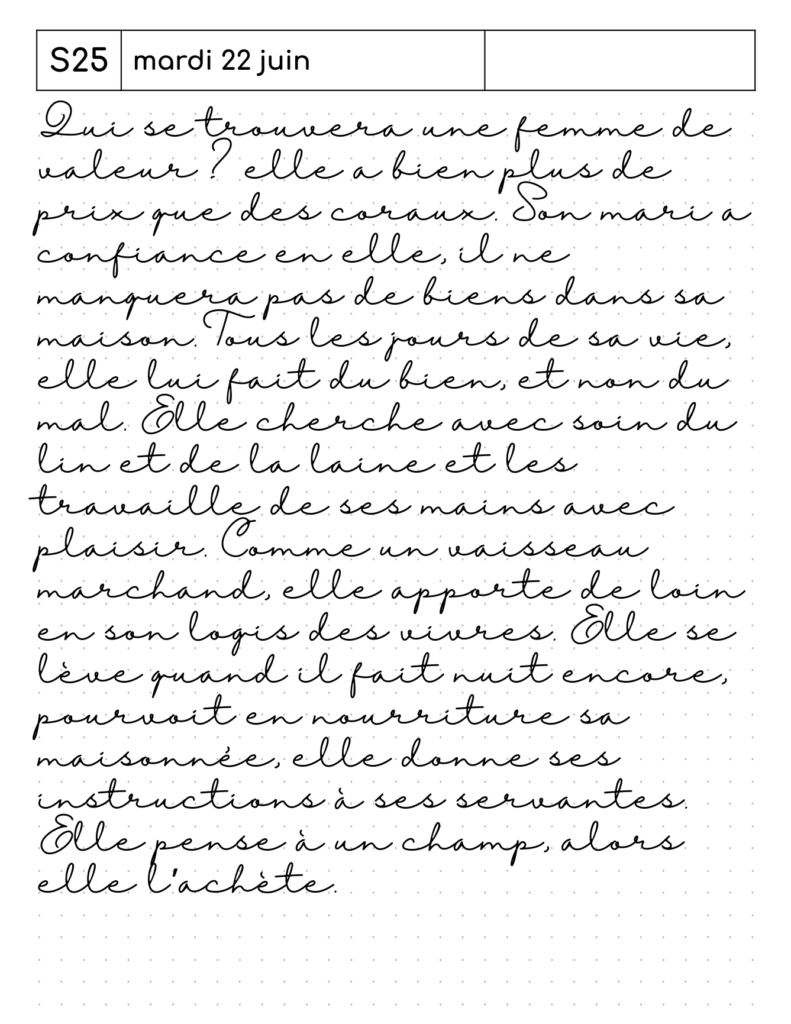 S25 mardi 22 juin
Qui se trouvera une femme de
valeur ? elle a bien plus de
prix que des coraux. Son mari a
confiance en elle, il ne
manquera pas de biens dans sa
maison. Tous les jours de sa vie,
elle lui fait du bien, et non du
mal. Elle cherche avec soin du
lin et de la laine et les
travaille de ses mains avec
plaisir. Comme un vaisseau
marchand, elle apporte de loin
en son logis des vivres. Elle se
lève quand il fait nuit encore,
pourvoit en nourriture sa
maisonnée, elle donne ses
instructions à ses servantes.
Elle pense à un champ, alors
elle l'achète.